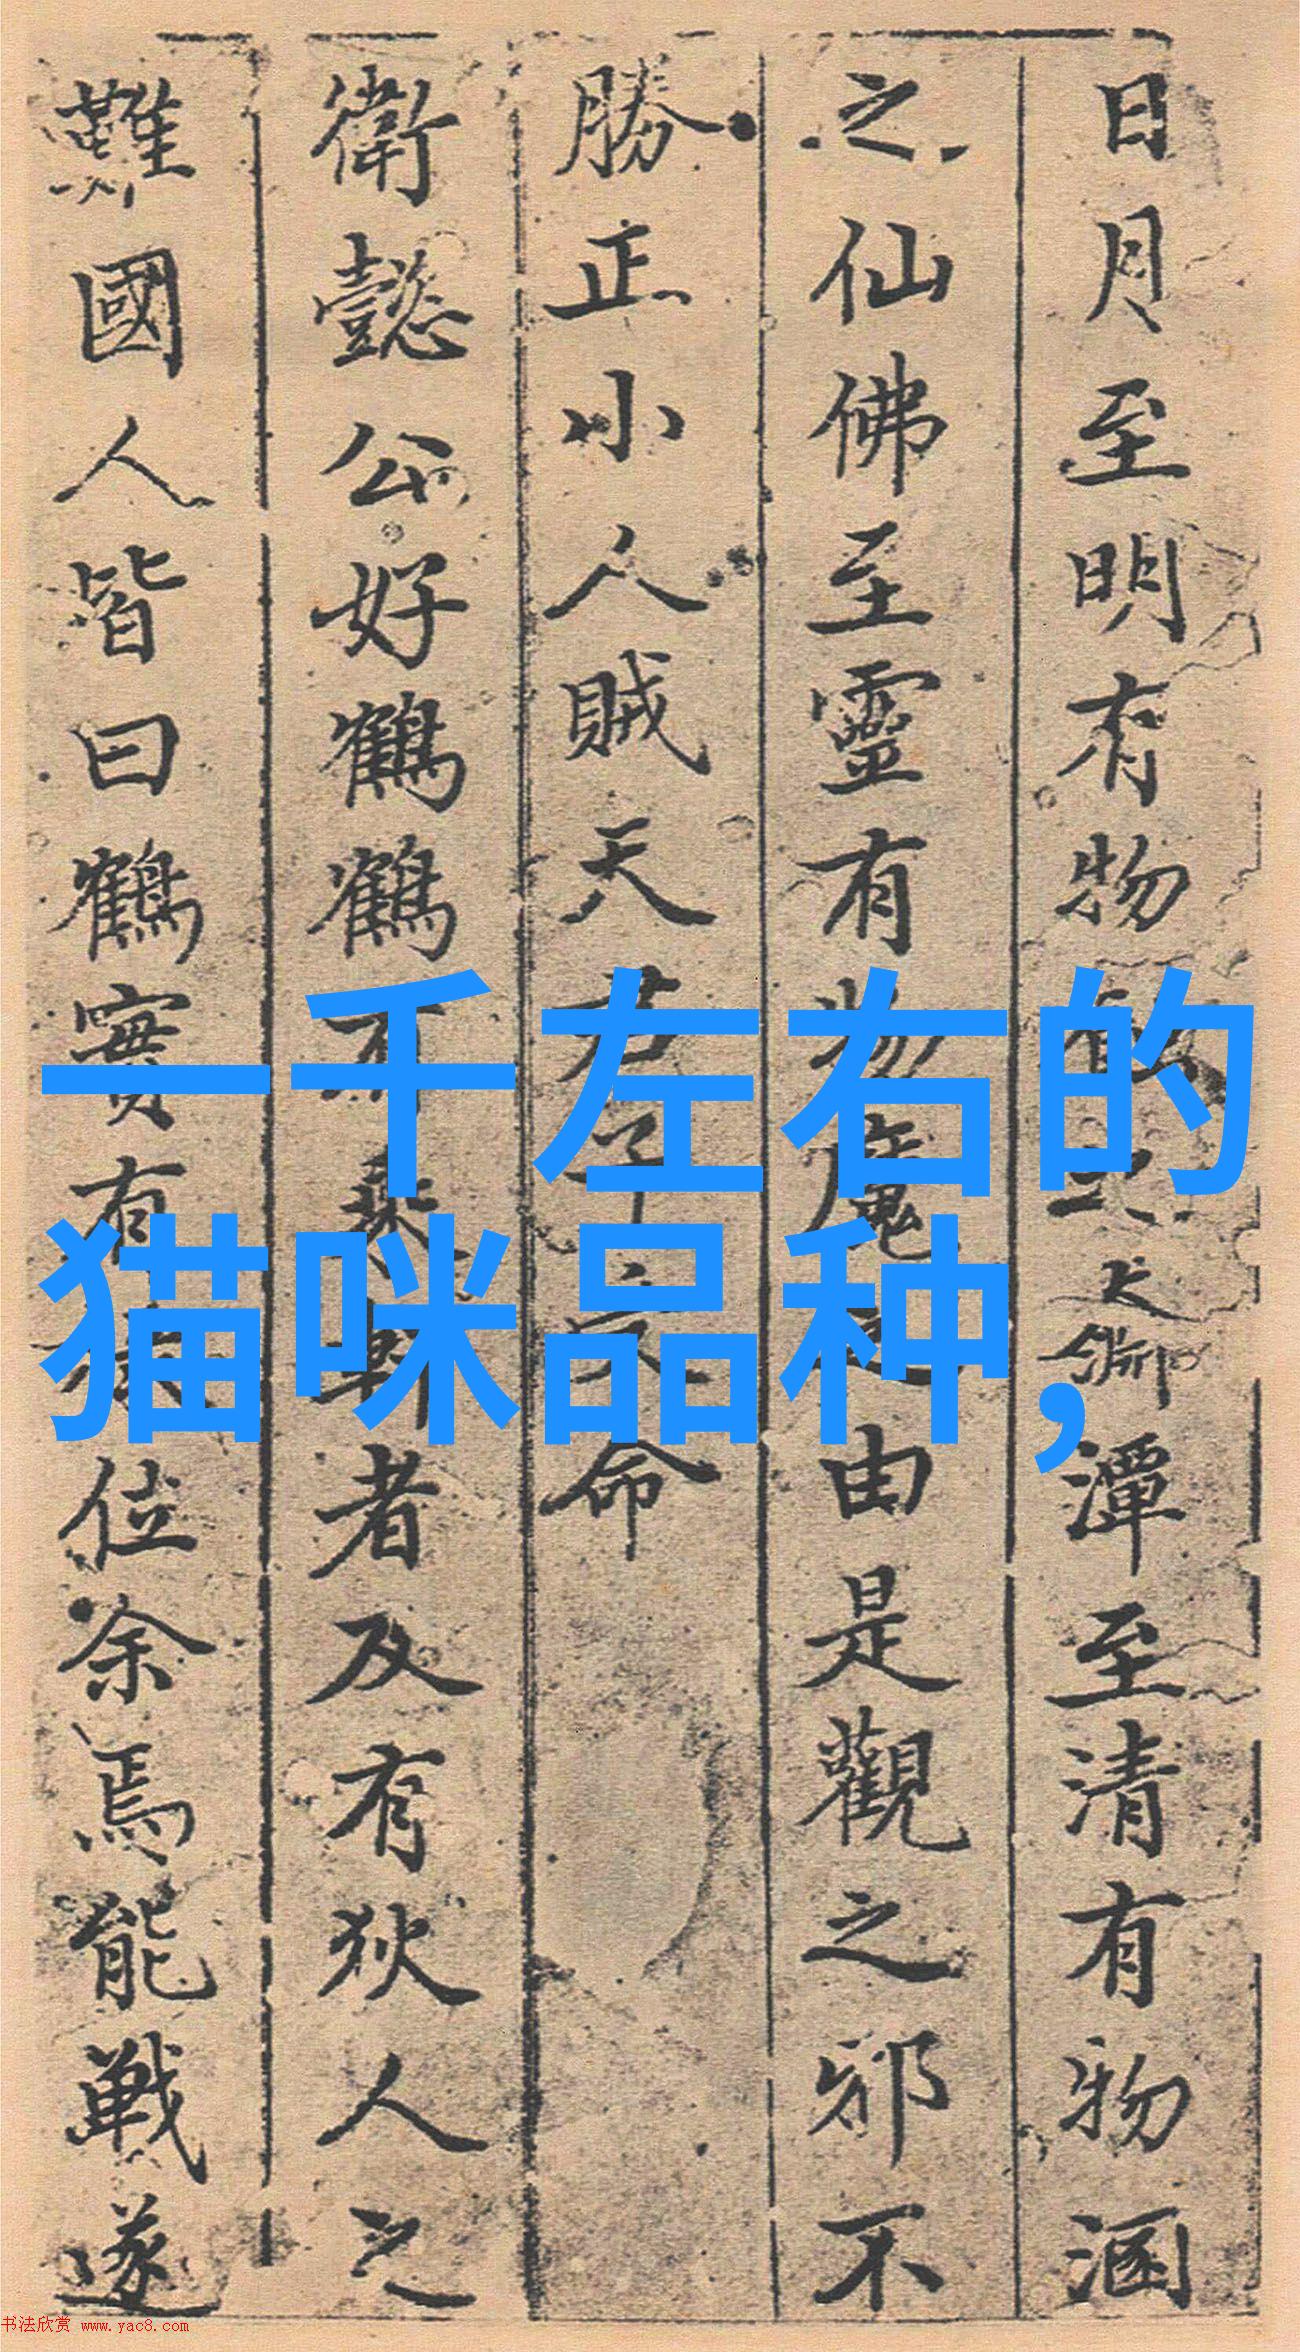 日月至明有物蝕之大淵潭至清有物涵
之仙佛至靈有物魔之由是觀之邪不
勝正小人賊天君子之命
衛懿公好鶴鶴有乘軒者及有狄人之
難國人皆曰鶴實有祿位余焉能戰遂
一千左右的
猫咪品种,
书法欣赏 www.yac8.com